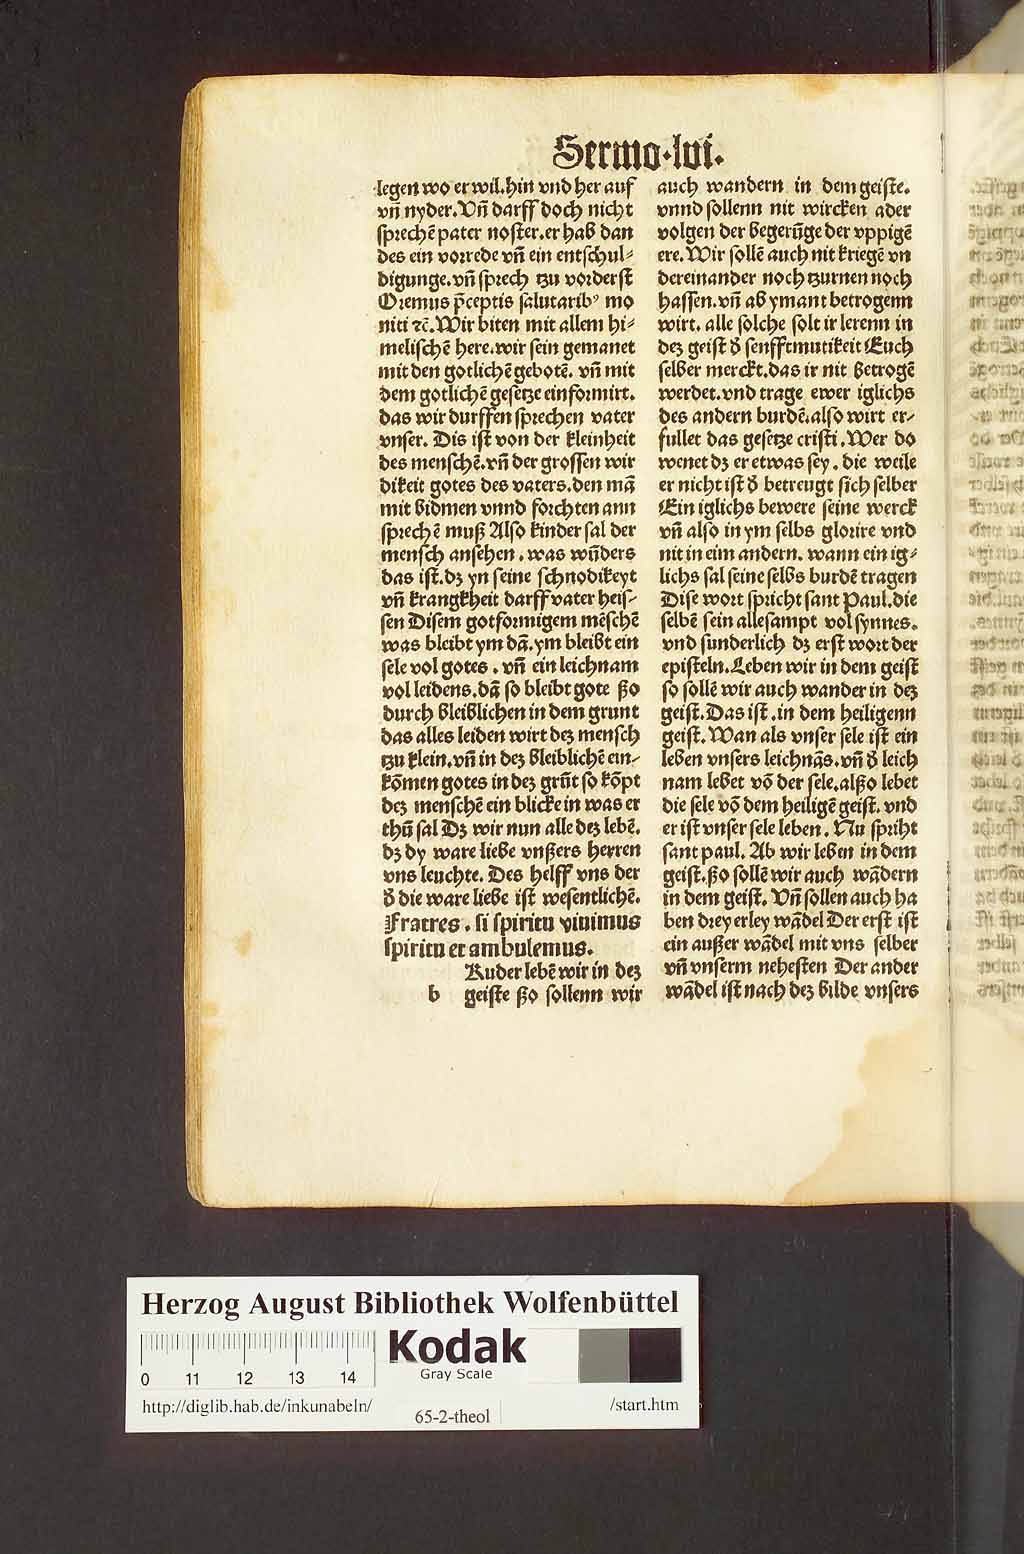 Sermo·lvi.
legen wo er wil.hin vnd her auf
vñ nyder.Vñ darff doch nicht
sprechē pater noster.er hab dan
des ein vorrede vñ ein entschul⸗
digunge.vñ sprech tzu vorderst
Oremus p̄ceptis salutarib⁹ mo
niti ⁊c̄.Wir biten mit allem hi⸗
melischē here.wir sein gemanet
mit den gotlichē gebotē. vñ mit
dem gotlichē gesetze einformirt.
das wir durffen sprechen vater
vnser. Dis ist von der kleinheit
des menschē.vñ der grossen wir
dikeit gotes des vaters.den mā
mit bidmen vnnd forchten ann
sprechē muß Also kinder sal der
mensch ansehen. was wūders
das ist.dz yn seine schnodikeyt
vñ krangkheit darff vater heis⸗
sen Disem gotformigem mēschē
was bleibt ym dā.ym bleibt ein
sele vol gotes. vñ ein leichnam
vol leidens.dā so bleibt gote ßo
durch bleiblichen in dem grunt
das alles leiden wirt deʒ mensch
tzu klein.vñ in deʒ bleiblichē ein⸗
kōmen gotes in deʒ grūt so kōpt
deʒ menschē ein blicke in was er
thū sal Dʒ wir nun alle deʒ lebē.
dʒ dy ware liebe vnßers herren
vns leuchte. Des helff vns der
d̓ die ware liebe ist wesentlichē.
Fratres. si spiritu vivimus
spiritu et ambulemus.
Ruder lebē wir in deʒ
b geiste ßo sollenn wir
auch wandern in dem geiste.
vnnd sollenn nit wircken ader
volgen der begerūge der vppigē
ere.Wir sollē auch nit kriegē vn
dereinander noch tzurnen noch
hassen.vñ ab ymant betrogenn
wirt. alle solche solt ir lerenn in
deʒ geist d̓ senfftmutikeit Euch
selber merckt.das ir nit betrogē
werdet.vnd trage ewer iglichs
des andern burdē.also wirt er⸗
fullet das gesetze cristi.Wer do
wenet dʒ er etwas sey. die weile
er nicht ist d̓ betreugt sich selber
Ein iglichs bewere seine werck
vñ also in ym selbs glorire vnd
nit in eim andern. wann ein ig⸗
lichs sal seine selbs burdē tragen
Dise wort spricht sant Paul.die
selbē sein allesampt vol synnes.
vnd sunderlich dʒ erst wort der
episteln.Leben wir in dem geist
so sollē wir auch wander in deʒ
geist.Das ist.in dem heiligenn
geist.Wan als vnser sele ist ein
leben vnsers leichnās.vñ d̓ leich
nam lebet vō der sele.alßo lebet
die sele vō dem heiligē geist.vnd
er ist vnser sele leben. Nu spriht
sant paul. Ab wir leben in dem
geist.ßo sollē wir auch wādern
in dem geist. Vñ sollen auch ha
ben dreyerley wādel Der erst ist
ein außer wādel mit vns selber
vñ vnserm nehesten Der ander
wādel ist nach deʒ bilde vnsers
Herzog August Bibliothek Wolfenbüttel
Kodak
Gray Scale
0 11 12 13 14
http://diglib.hab.de/inkunabeln/ 65-2-theol /start.htm